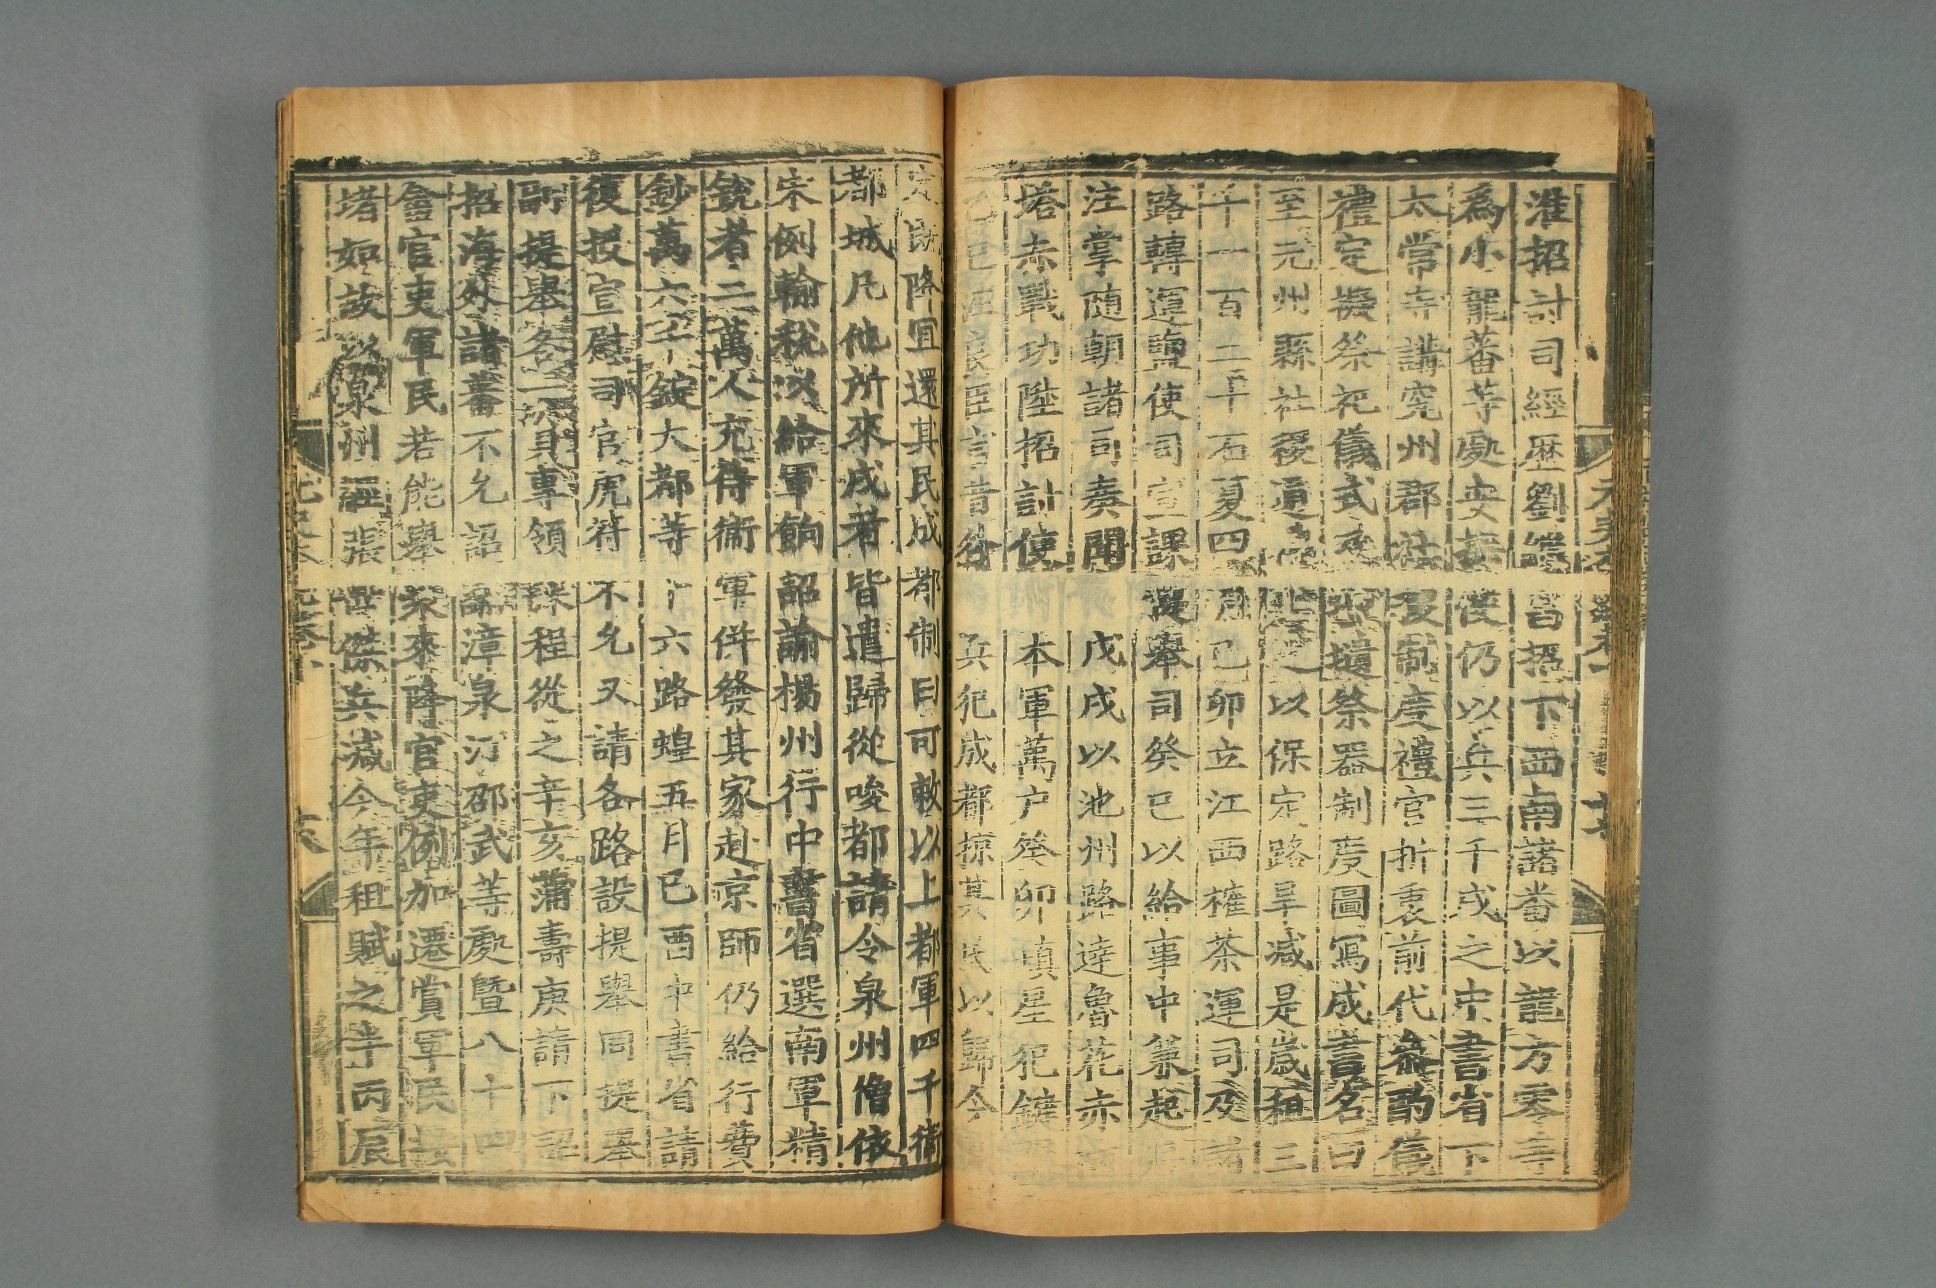 淮招討司經歷劉繼昌招下西南諸番以龍方零等
爲小龍蕃等處安撫使仍以兵三千戍之宋書省下
太常寺講究州郡社稷制度禮官折衷前代參酌儀
禮定擬祭祀儀式及壇壝祭器制度圖寫成書名曰
至元州縣社稷通禮上之以保定路旱減是歲租三
千一百二十石夏四月己卯立江西榷茶運司及諸
路轉運鹽使司宣課提舉司癸巳以給事中兼起居
注掌隨朝諸司奏聞事戊戌以池州路達魯花赤阿
塔赤戰功陞招討使兼本軍萬戶癸卯塡星犯鍵閉
乙巳汪良臣言昔
兵犯成都掠其民以歸今
定既降宜還其民成都制曰可敕以上都軍四千衛
都城凡他所來戍者皆遣歸從唆都請令泉州僧依
宋例輸稅以給軍餉詔諭揚州行中書省選南軍精
銳者二萬人充侍衛軍併發其家赴京師仍給行費
鈔萬六千錠大都等十六路蝗五月己酉中書省請
復授宣慰司官虎符不允又請各路設提舉同提舉
副提舉各一員專領課程從之辛亥蒲壽庚請下詔
招海外諸蕃不允詔諭漳泉汀邵武等處暨八十四
畬官吏軍民若能舉衆來降官吏例加遷賞軍民按
堵如故以泉州經張世傑兵減今年租賦之半丙辰